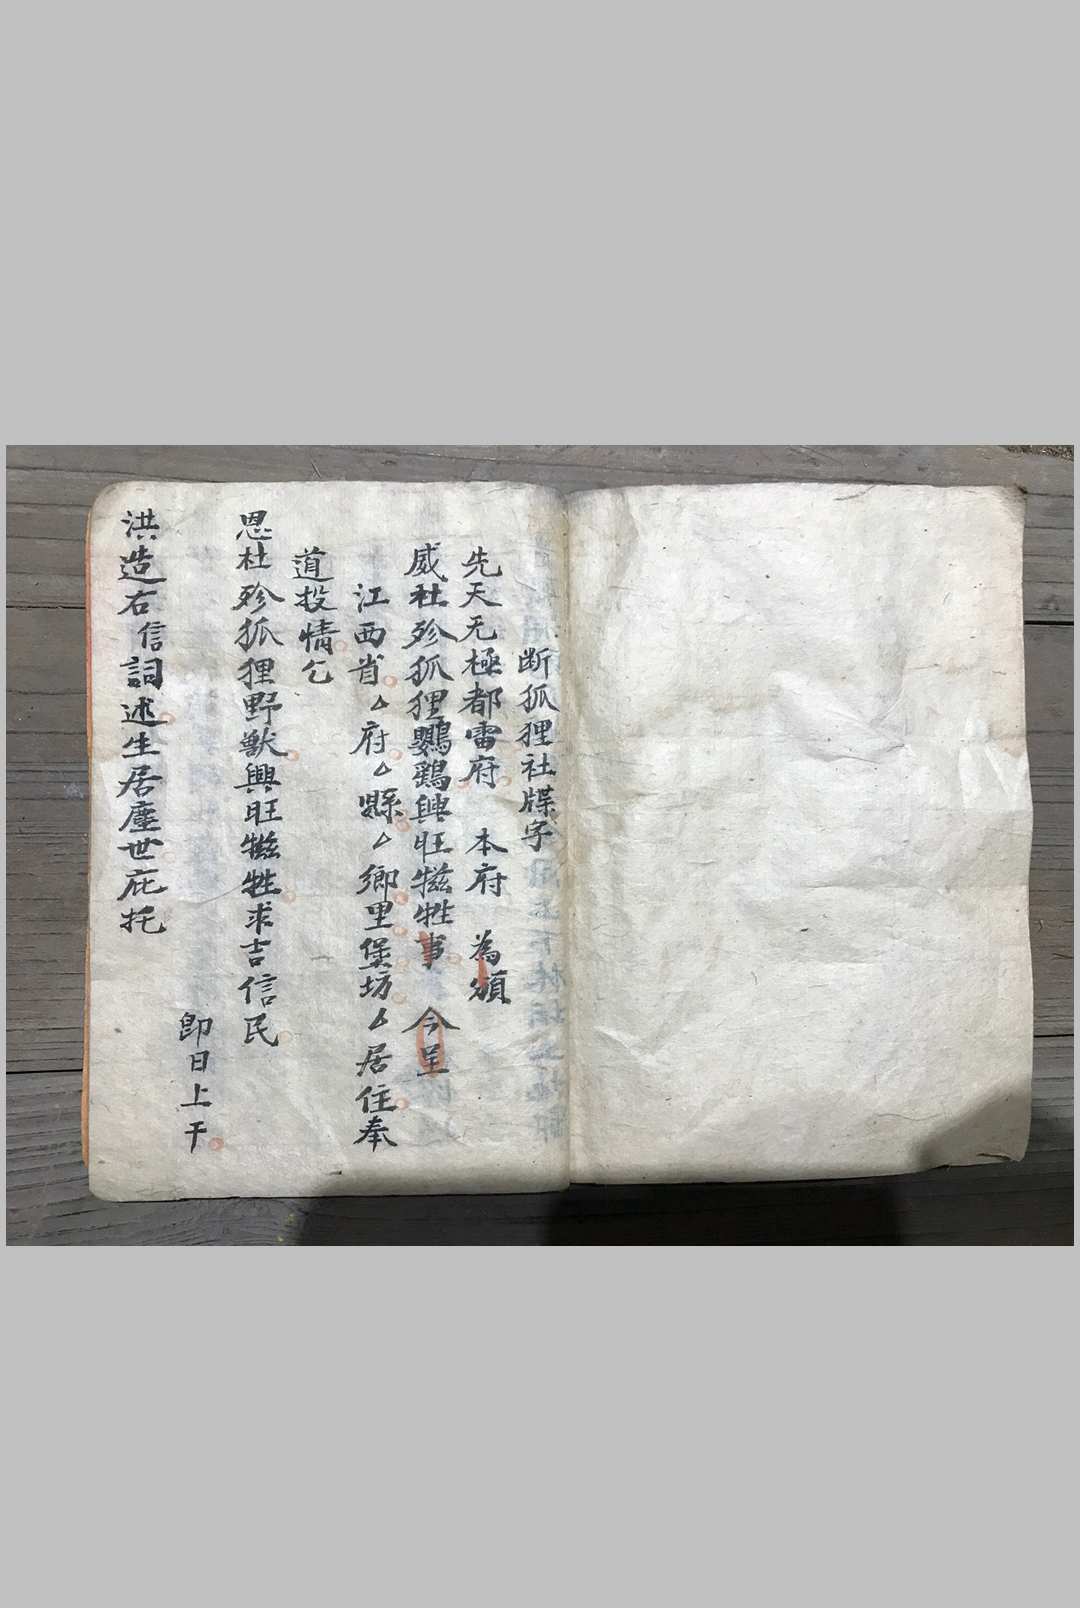 断狐狸社牒字
先天无極都雷府 本府 為頒
威杜殄狐狸鸚鷄興旺犠牲事 今呈
江西省△府△縣△鄉里堡坊△居住奉
道投情乞
恩杜殄狐狸野獸興旺犠牲求吉信民
即日上干
洪造右信詞述生居塵世庇托